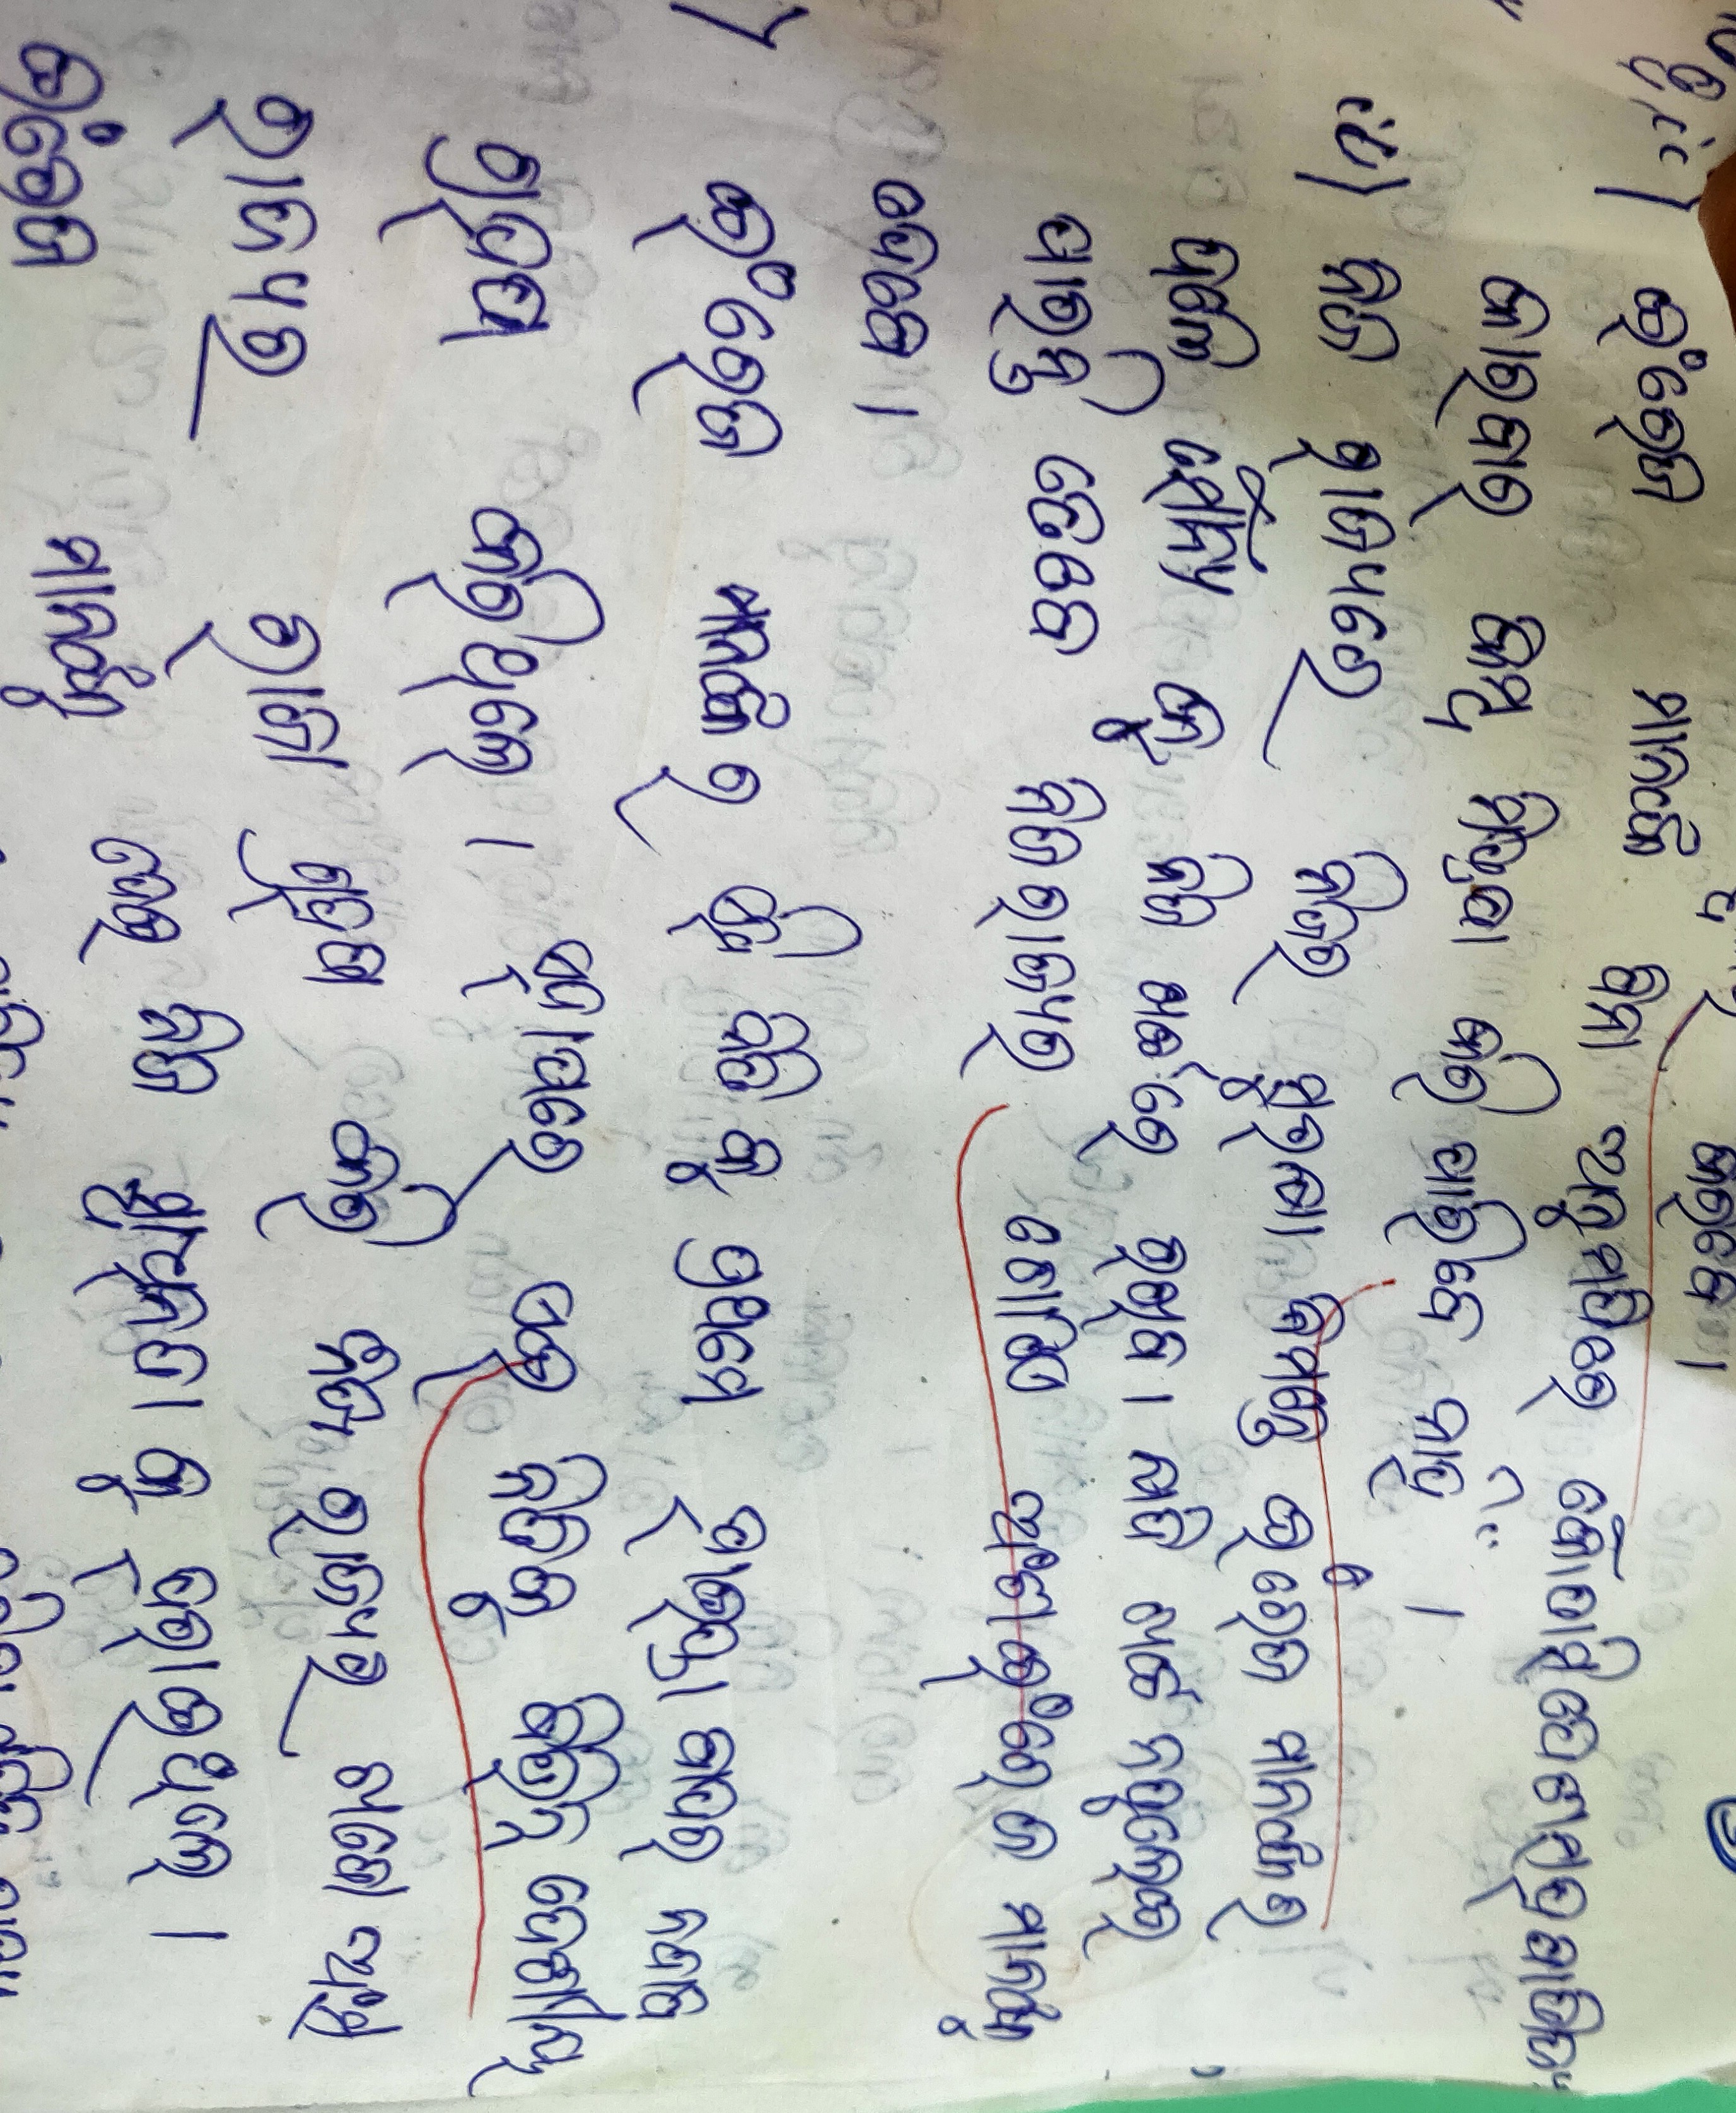 କରିବେ ।
iii) ଇଂରେଜ ମାନଙ୍କ ବିନା ଅନୁମତିରେ କୌଣସି ଦେଶ ସହ ବାଣିଜ୍ୟ
କାରବାର କିମ୍ବା ମିତ୍ରତା କରି ପାରିବେ ନାହିଁ ।
iv) ନିଜ ରାଜ୍ୟରେ ନିଜର ସୁରକ୍ଷା ନିମନ୍ତେ ଇଂରେଜ ମାନଙ୍କର
ଦଳେ ସୈନ୍ୟ କୁ ନିଜ ଖର୍ଚ୍ଚରେ ରଖିବ । ଯଦି ଖର୍ଚ୍ଚ ନତୁଲେଇ
ପାରନ୍ତି ତେବେ ନିଜ ରାଜ୍ୟର ଗୋଟିଏ ଅଂଶ ଇଂରେଜ ମାନଙ୍କୁ
ଦେବେ ।
) ଇଂରେଜ ମାନଙ୍କର ଏହି ନିତି କୁ ପ୍ରଥମେ ହାଇଦ୍ରାବାଦର ନବାବ
ଗ୍ରହଣ କରିଥିଲେ । ଏହାପରେ ଏଇ ନିତିକୁ ବିଭିନ୍ନ ଦେଶୀୟ
ରାଜ୍ୟର ରାଜା ଗ୍ରହଣ କରି ନିଜ ରାଜ୍ୟର ଅଂଶ
ଇଂରେଜ ମାନଙ୍କୁ ଦେଇ ନିଜ ସ୍ଵାଧିନତା କୁ ହରାଇଥିଲେ ।